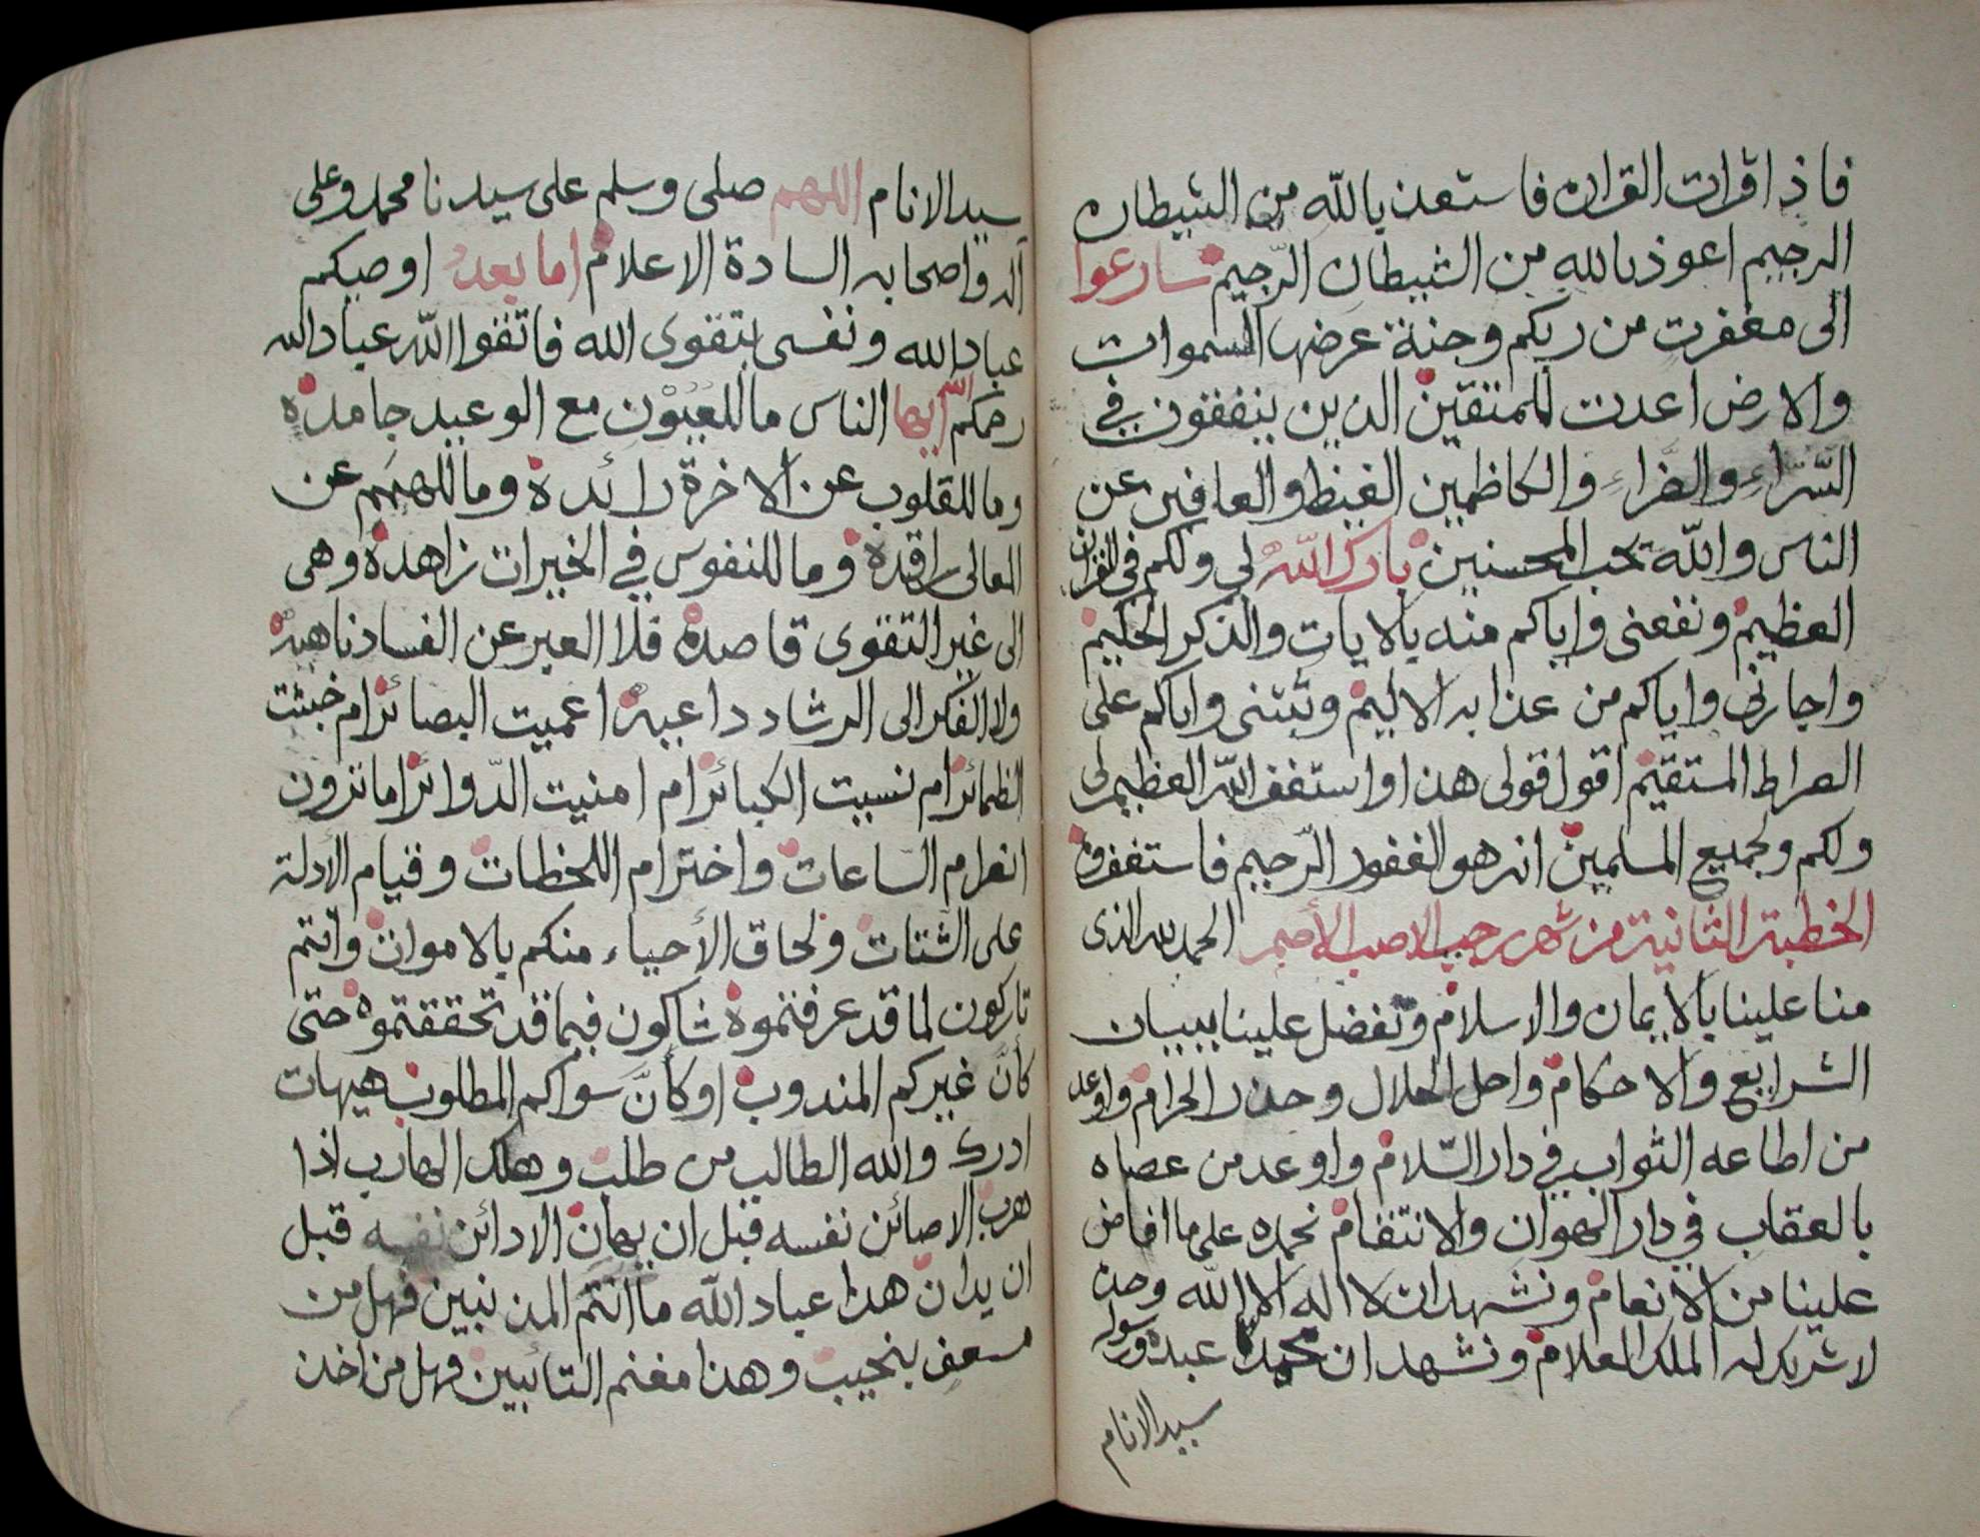 فاذ اقرات القران فاستعذ بالله من الشيطان
الرجيم اعوذ بالله من الشيطان الرّجيم سارعوا
الى مغفرت من ربكم وجنة عرضها السموات
والارض اعدت للمتقين الذين ينفقون في
السّراء والضراء والكاظمين الغيظ والعافين عن
الناس والله يحب المحسنين بارك اللهُ لي ولكم في القران
العظيم ونفعنى واياكم منه بالايات والذكر الحكيم
واجارنى واياكم من عذابه الاليم وثبتنى واياكم على
الصراط المستقيم اقول قولى هذا واستغفر الله العظيم لى
ولكم ولجميع المسلمين انه هو الغفور الرّحيم فاستغفروه
الخطبة الثانية من شهر رجب الاصب الأصم الحمد لله الذى
منا علينا بالايمان والاسلام وتفضل علينا ببيان
الشرايع والاحكام واحل الحلال وحذر الحرام واوعد
من اطاعه الثواب في دار السّلام واوعد من عصاه
بالعقاب في دار الهوان والانتقام نحمده على ما افاض
علينا من الانعام ونشهد ان لا اله الا الله وحده
لا شريك له الملك العلام ونشهد ان محمدا عبده ورسوله
سيد الانام
سيد الانام اللهم صلى وسلم على سيدنا محمد وعلى
اله واصحابه السادة الاعلام اما بعدُ اوصيكم
عباد الله ونفسى بتقوى الله فاتقوا الله عباد الله
رحمكم الله ايها الناس ما للعيون مع الوعيد جامدة
وما للقلوب عن الاخرة رائدة وما للهمم عن
المعالى راقدة وما للنفوس في الخيرات زاهدة وهى
الى غير التقوى قاصدة فلا العبر عن الفساد ناهيةٌ
ولا الفكر الى الرشاد داعيةٌ اعميت البصائر ام خبثت
الظمائر ام نسيت الكبائر ام امنيت الدّوائر اما ترون
انصرام الساعات واخترام اللحظات وقيام الأدلة
على الشتات ولحاق الأحياء منكم بالاموات وانتم
تاركون لما قد عرفتموه شاكون فيما قد تحققتموه حتى
كأنّ غيركم المندوب او كأنّ سواكم المطلوب هيهات
ادرك والله الطالب من طلب وهلك الهارب اذا
هرب الا صائن نفسه قبل ان يهان الا دائن نفسه قبل
ان يدان هذا عباد الله ما انتم المذنبين فهل من
مسعف بنحيب وهذا مغنم التائبين فهل من اخذ